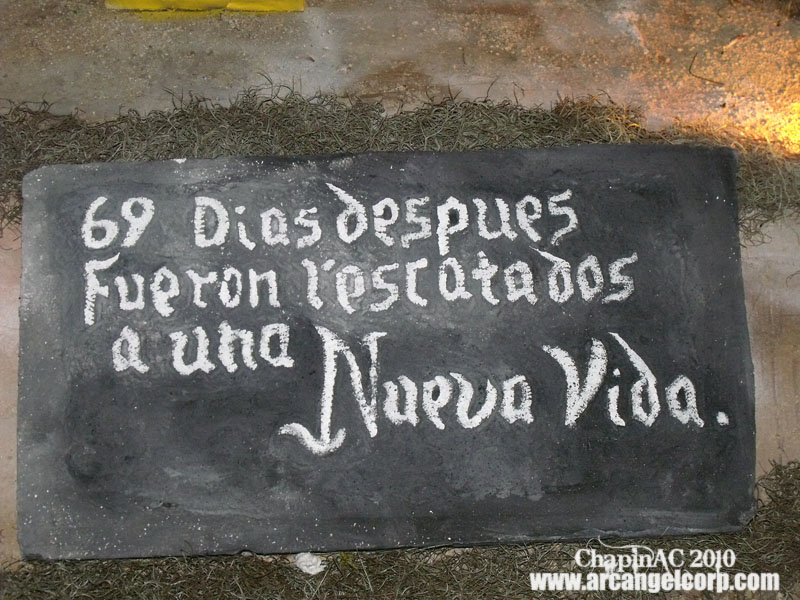 69 Dias despues
Fueron rescatados
a una Nueva Vida.
ChapinAC 2010
www.arcangelcorp.com